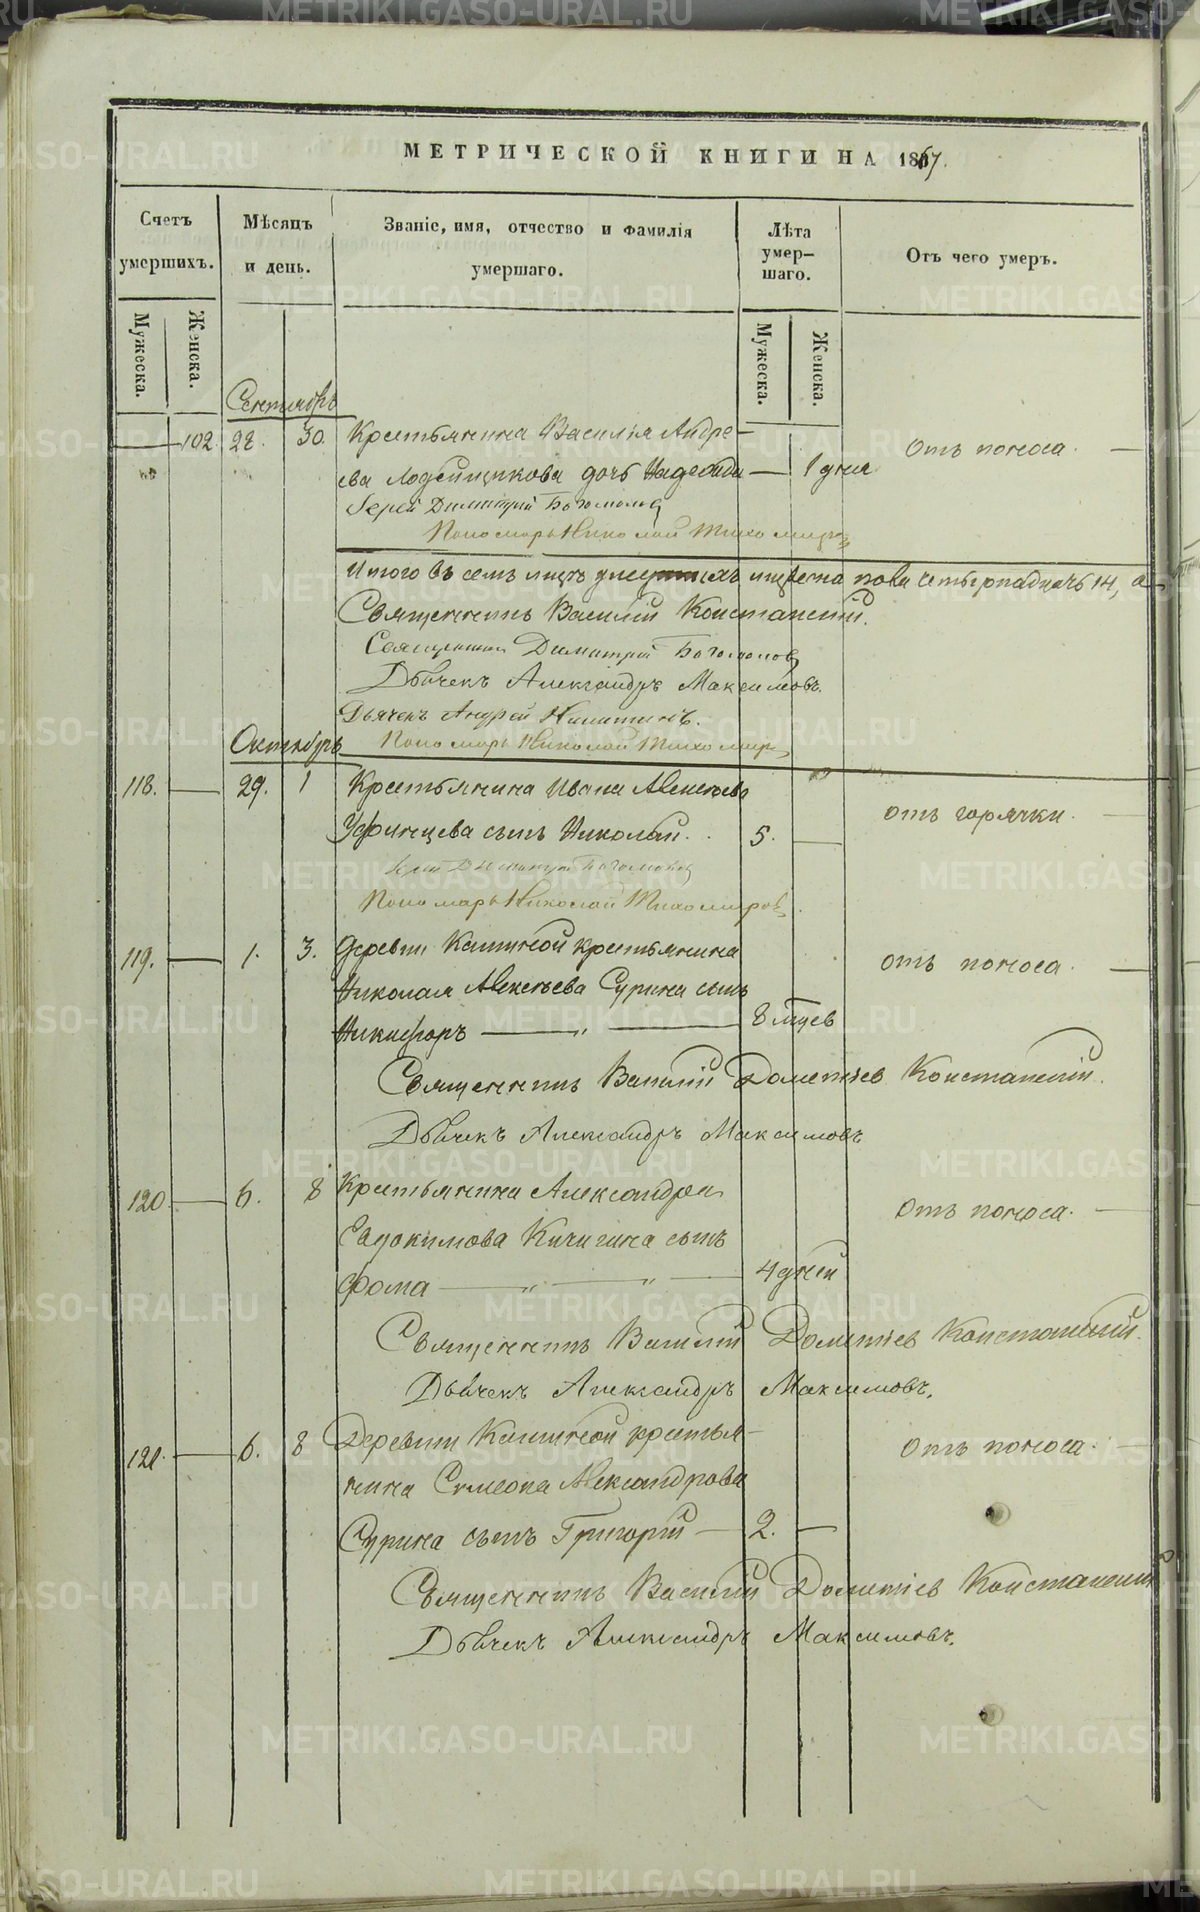 МЕТРИЧЕСКОЙ КНИГИ НА 1867.
Счетъ умершихъ.
Мѣсяцъ и день.
Званіе, имя, отчество и фамилія умершаго.
Лѣта умер-шаго.
Отъ чего умеръ.
Мужеска.
Женска.
Мужеска.
Женска.
Сентябрь
102. 28. 30. Крестьянина Василія Андре-
Отъ поноса.
ева дочь Надежда — 1 дня
Іерей Димитрій Богомолов
Пономарь Николай Тихомиров
Итого въ семъ мцѣ умершихъ мужеска пола четырнадцать 14, а
Священникъ Василій Констанскій.
Священникъ Димитрій Богомолов
Дьячекъ Александръ Максимовъ.
Дьячекъ Андрей Никитинъ.
Октябрь
Пономарь Николай Тихомиров
118. — 29. 1 Крестьянина Ивана Алексѣева
Уфинцева сынъ Николай. 5. —
отъ горячки.
Іерей Димитрій Богомолов
Пономарь Николай Тихомировъ.
119. — 1. 3. Деревни крестьянина
отъ поноса.
Николая Алексѣева Сурина сынъ
Никифоръ — „ — 8 мцев
Священникъ Василій Дометіев Констанскій.
Дьячекъ Александръ Максимовъ
120. — 6. 8 Крестьянина Александра
Отъ поноса.
Евдокимова Кичигина сынъ
Фома — „ — „ — 4 дней
Священникъ Василій Дометіев Констанскій.
Дьячекъ Александръ Максимовъ.
121. — 6. 8 Деревни крестья-
отъ поноса.
нина Симеона Александрова
Сурина сынъ Григорій — 2. —
Священникъ Василій Дометіев Констанскій
Дьячекъ Александръ Максимовъ.
METRIKI.GASO-URAL.RU